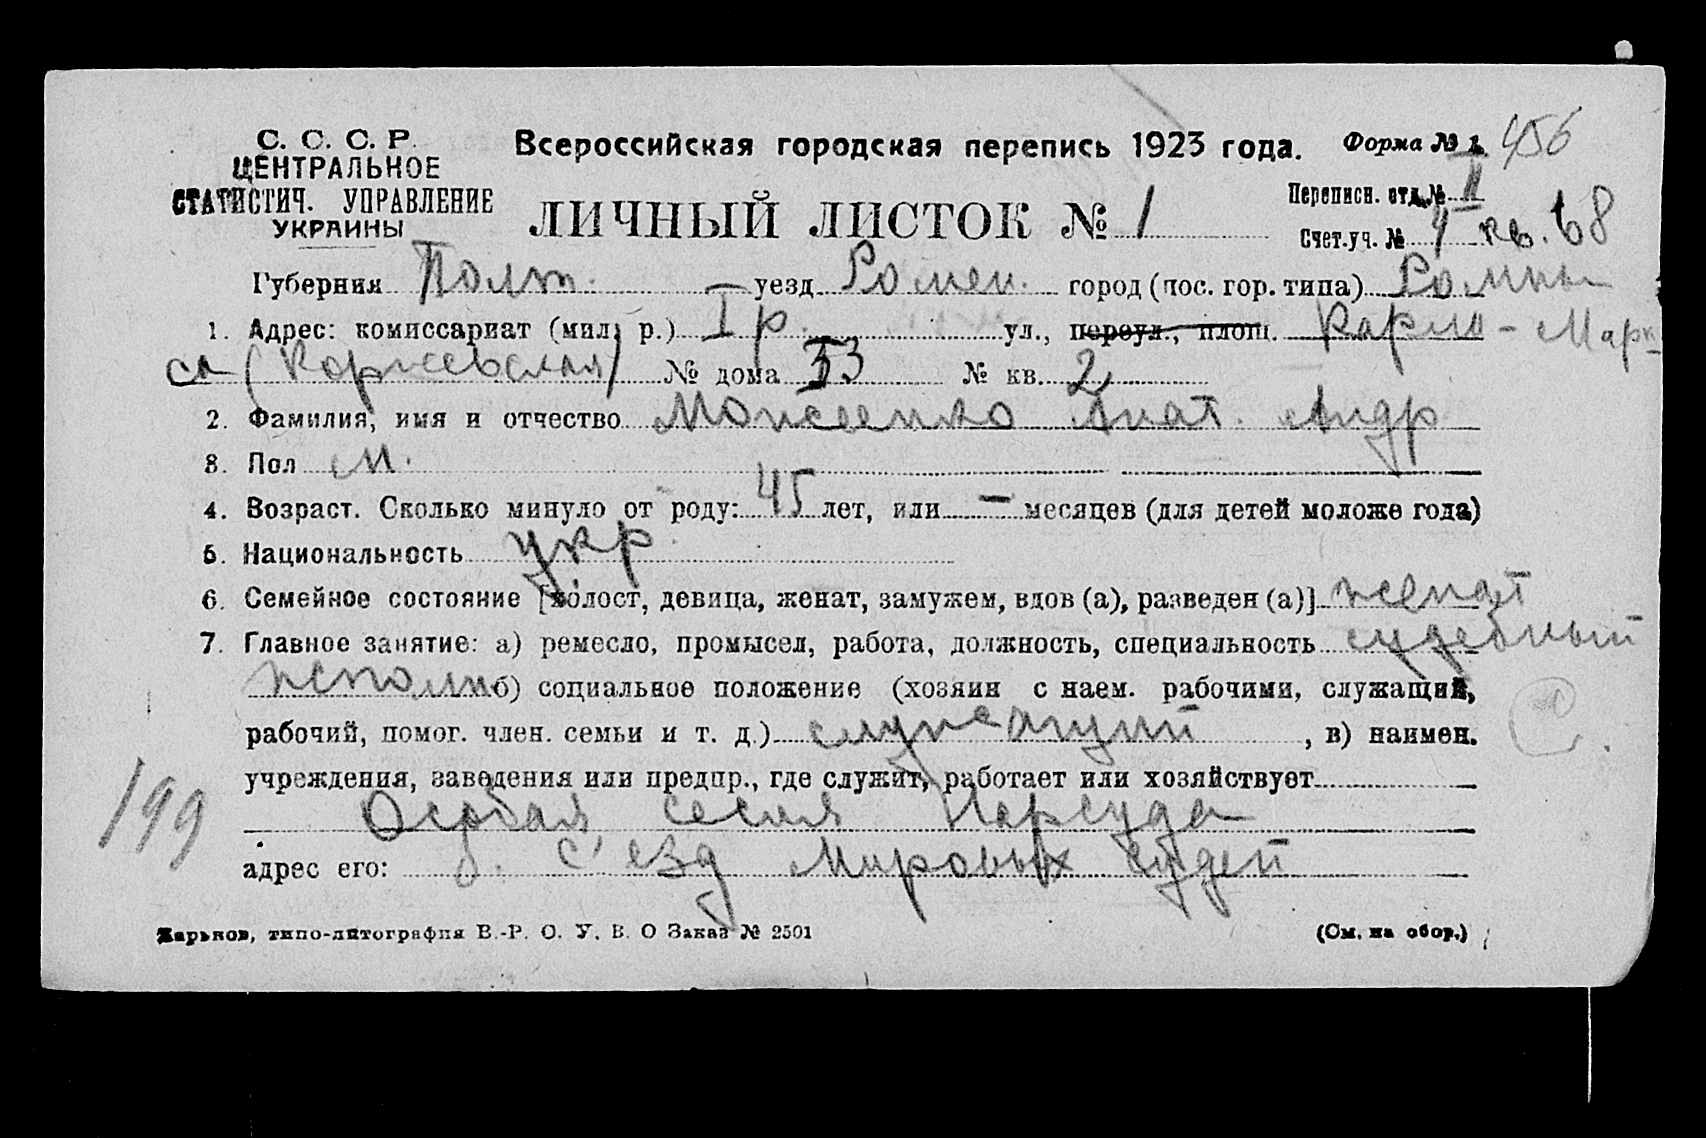 С. С. С. Р.
ЦЕНТРАЛЬНОЕ
СТАТИСТИЧ. УПРАВЛЕНИЕ
УКРАИНЫ
Всероссийская городская перепись 1923 года. Форма № 1. 456
ЛИЧНЫЙ ЛИСТОК № 1
Переписн. отд. № II
Счет.уч. № 4 кв. 68
Губерния Полт. уезд Ромен. город (пос. гор. типа) Ромны
1. Адрес: комиссариат (мил. р.) I р. ул., переул., площ. Карло-Марк-
са (Коржевская) № дома 33 № кв. 2
2. Фамилия, имя и отчество Моисеенко Анат. Андр
3. Пол м.
4. Возраст. Сколько минуло от роду: 45 лет, или — месяцев (для детей моложе года)
5. Национальность укр.
6. Семейное состояние [холост, девица, женат, замужем, вдов (а), разведен (а)] женат
7. Главное занятие: а) ремесло, промысел, работа, должность, специальность судебный
исполн б) социальное положение (хозяин с наем. рабочими, служащий,
рабочий, помог. член. семьи и т. д.) служащий , в) наимен.
учреждения, заведения или предпр., где служит, работает или хозяйствует
199
Особая сессия Нарсуда
адрес его: б. с'езд Мировых судей
Харьков, типо-литография В.-Р. О. У. В. О Заказ № 2501
(См. на обор.)